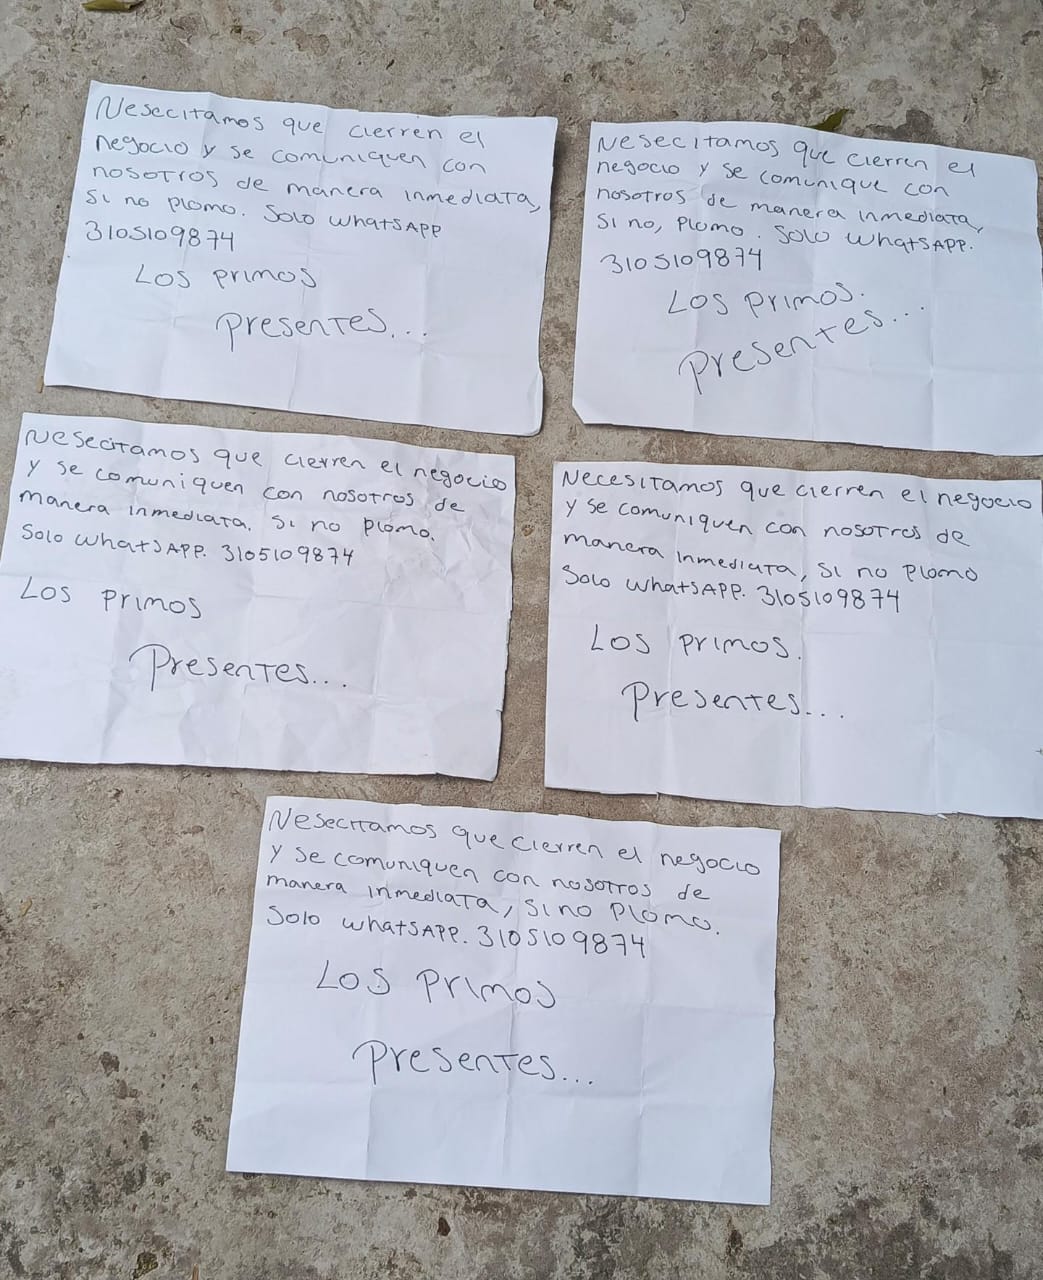 Nesecitamos que cierren el
negocio y se comuniquen con
nosotros de manera inmediata,
si no plomo. Solo WhatsApp
3105109874
Los primos
presentes...
Nesecitamos que cierren el
negocio y se comunique con
nosotros de manera inmediata,
si no, plomo. Solo WhatsApp.
3105109874
Los primos.
presentes...
Nesecitamos que cierren el negocio
y se comuniquen con nosotros de
manera inmediata, si no plomo.
Solo WhatsApp. 3105109874
Los primos
presentes...
Necesitamos que cierren el negocio
y se comuniquen con nosotros de
manera inmediata, si no plomo
Solo WhatsApp. 3105109874
Los primos.
presentes...
Nesecitamos que cierren el negocio
y se comuniquen con nosotros de
manera inmediata, si no plomo.
Solo WhatsApp. 3105109874
Los primos
presentes...